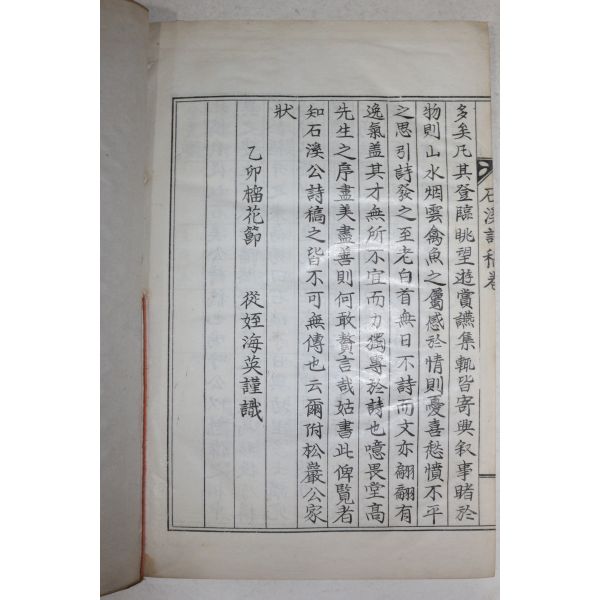 石溪詩稿卷
多矣凡其登臨眺望遊賞讌集輒皆寄興叙事睹於
物則山水烟雲禽魚之屬感於情則憂喜愁憤不平
之思引詩發之至老白首無日不詩而文亦翩翩有
逸氣盖其才無所不宜而力獨專於詩也噫畏堂高
先生之序盡美盡善則何敢贅言哉姑書此俾覽者
知石溪公詩稿之皆不可無傳也云爾附松巖公家
狀
乙卯榴花節 從姪海英謹識